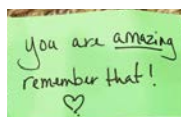 you are amazing
remember that!
♡